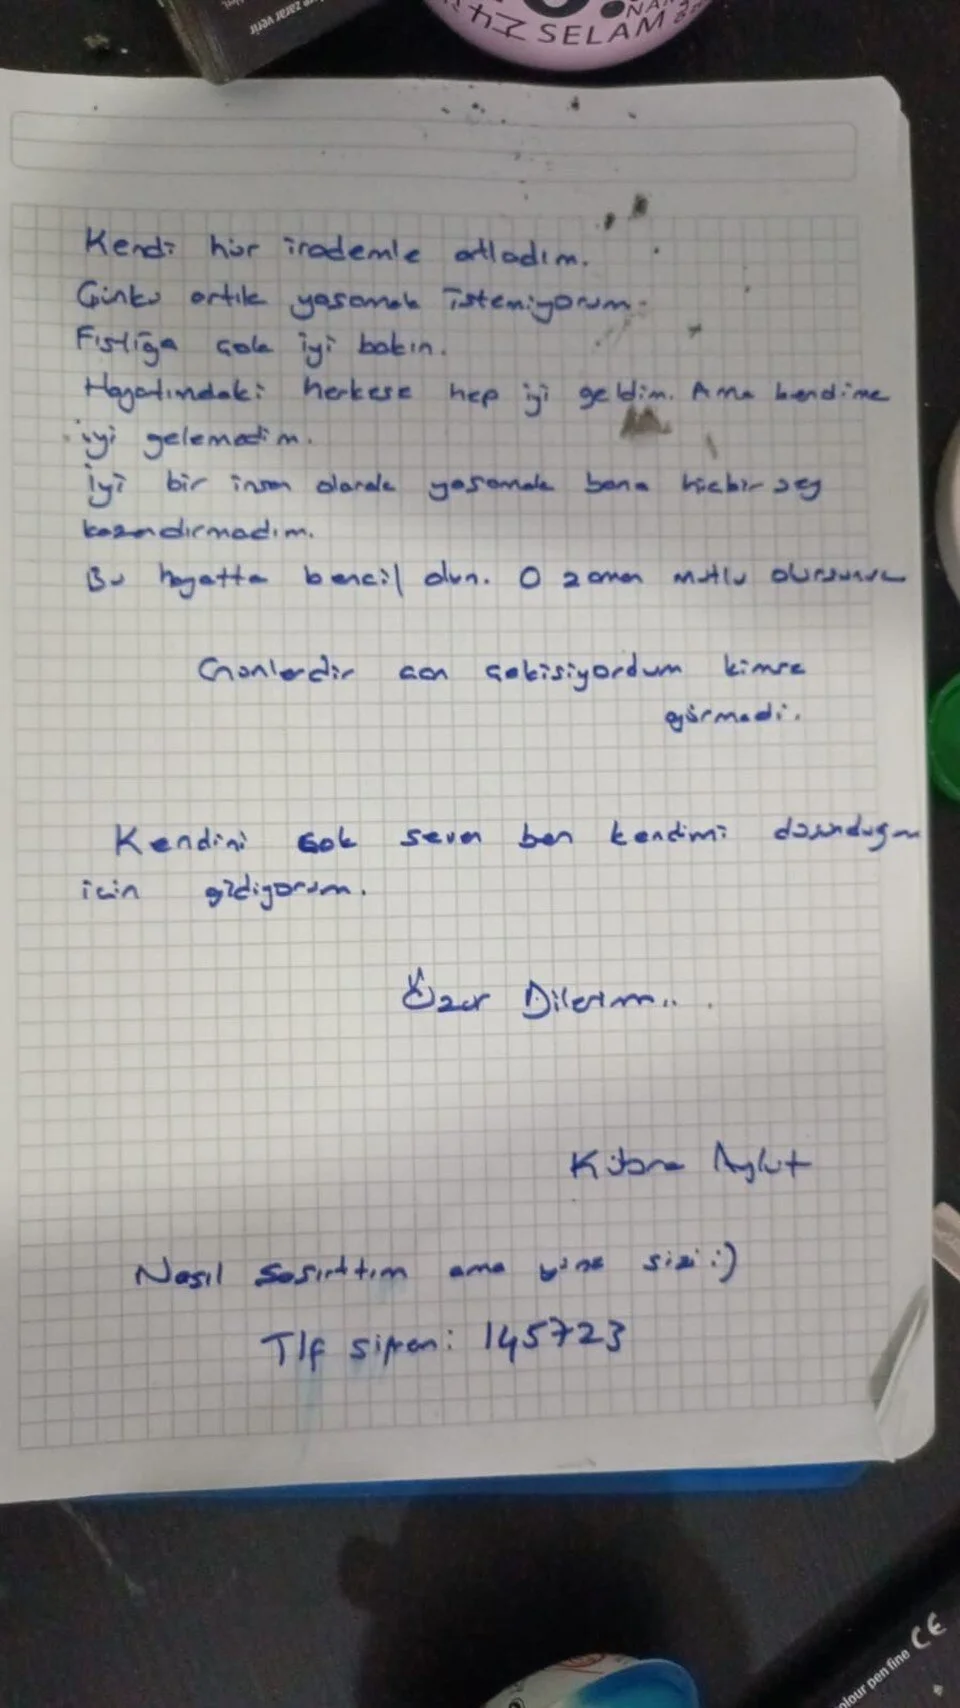 zarar verir
SELAM
Kendi hür irademle atladım.
Çünkü artık yaşamak istemiyorum.
Fıstığa çok iyi bakın.
Hayatımdaki herkese hep iyi geldim. Ama kendime
iyi gelemedim.
İyi bir insan olarak yaşamak bana hiçbir şey
kazandırmadım.
Bu hayatta bencil olun. O zaman mutlu olursunuz
Günlerdir can çekişiyordum kimse
görmedi.
Kendini çok seven ben kendimi düşündüğüm
için gidiyorum.
Özür Dilerim...
Nasıl şaşırttım ama yine sizi :)
Tlf şifrem: 145723
colour pen fine CE